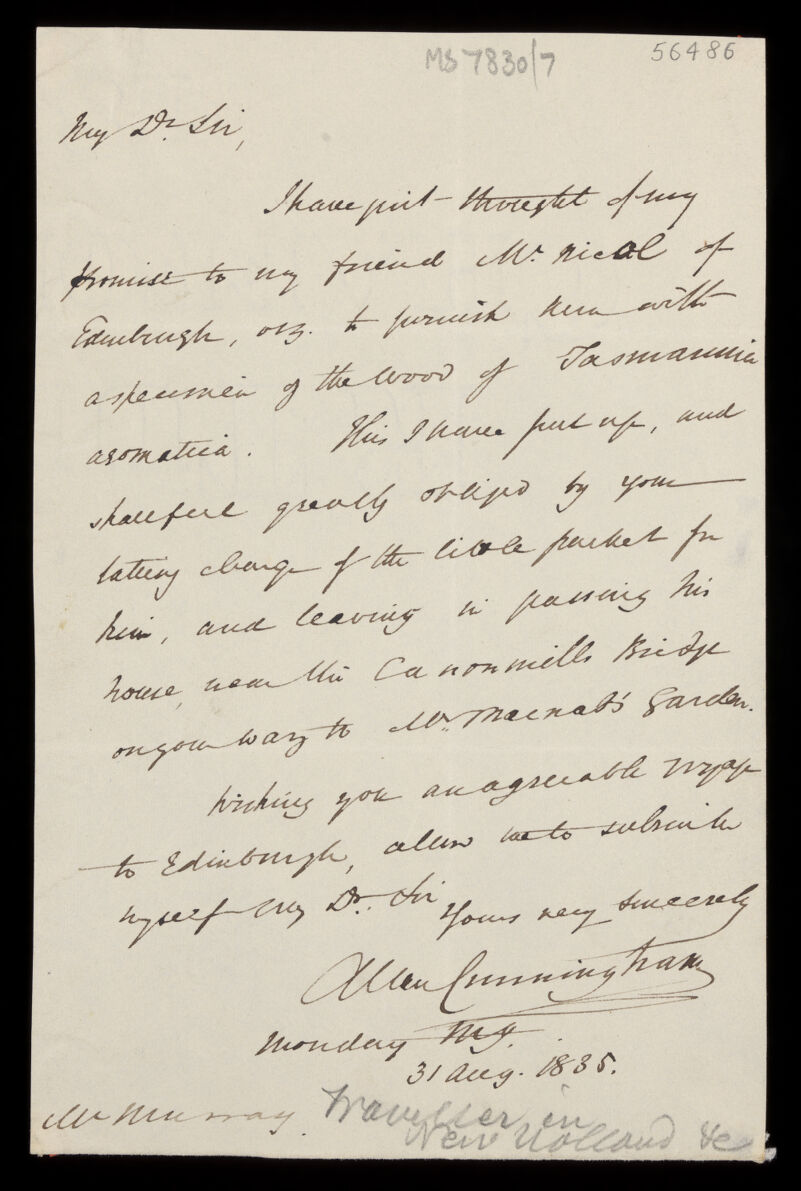 MS 7830/7
56486
My Dr. Sir,
I have just thought of my
promise to my friend Mr. Nicol of
Edinburgh, viz. to furnish him with
a specimen of the wood of Tasmannia
aromatica. This I have put up, and
shall feel greatly obliged by your
taking charge of the little packet for
him, and leaving in passing his
house, near the Canonmills Bridge
on your way to Mr. Macnab's Garden.
Wishing you an agreeable voyage
to Edinburgh, allow me to subscribe
myself My Dr. Sir
Yours very sincerely
Allan Cunningham
Monday Mg.
31 Aug. 1835.
Mr Murray Traveller in
New Holland &c